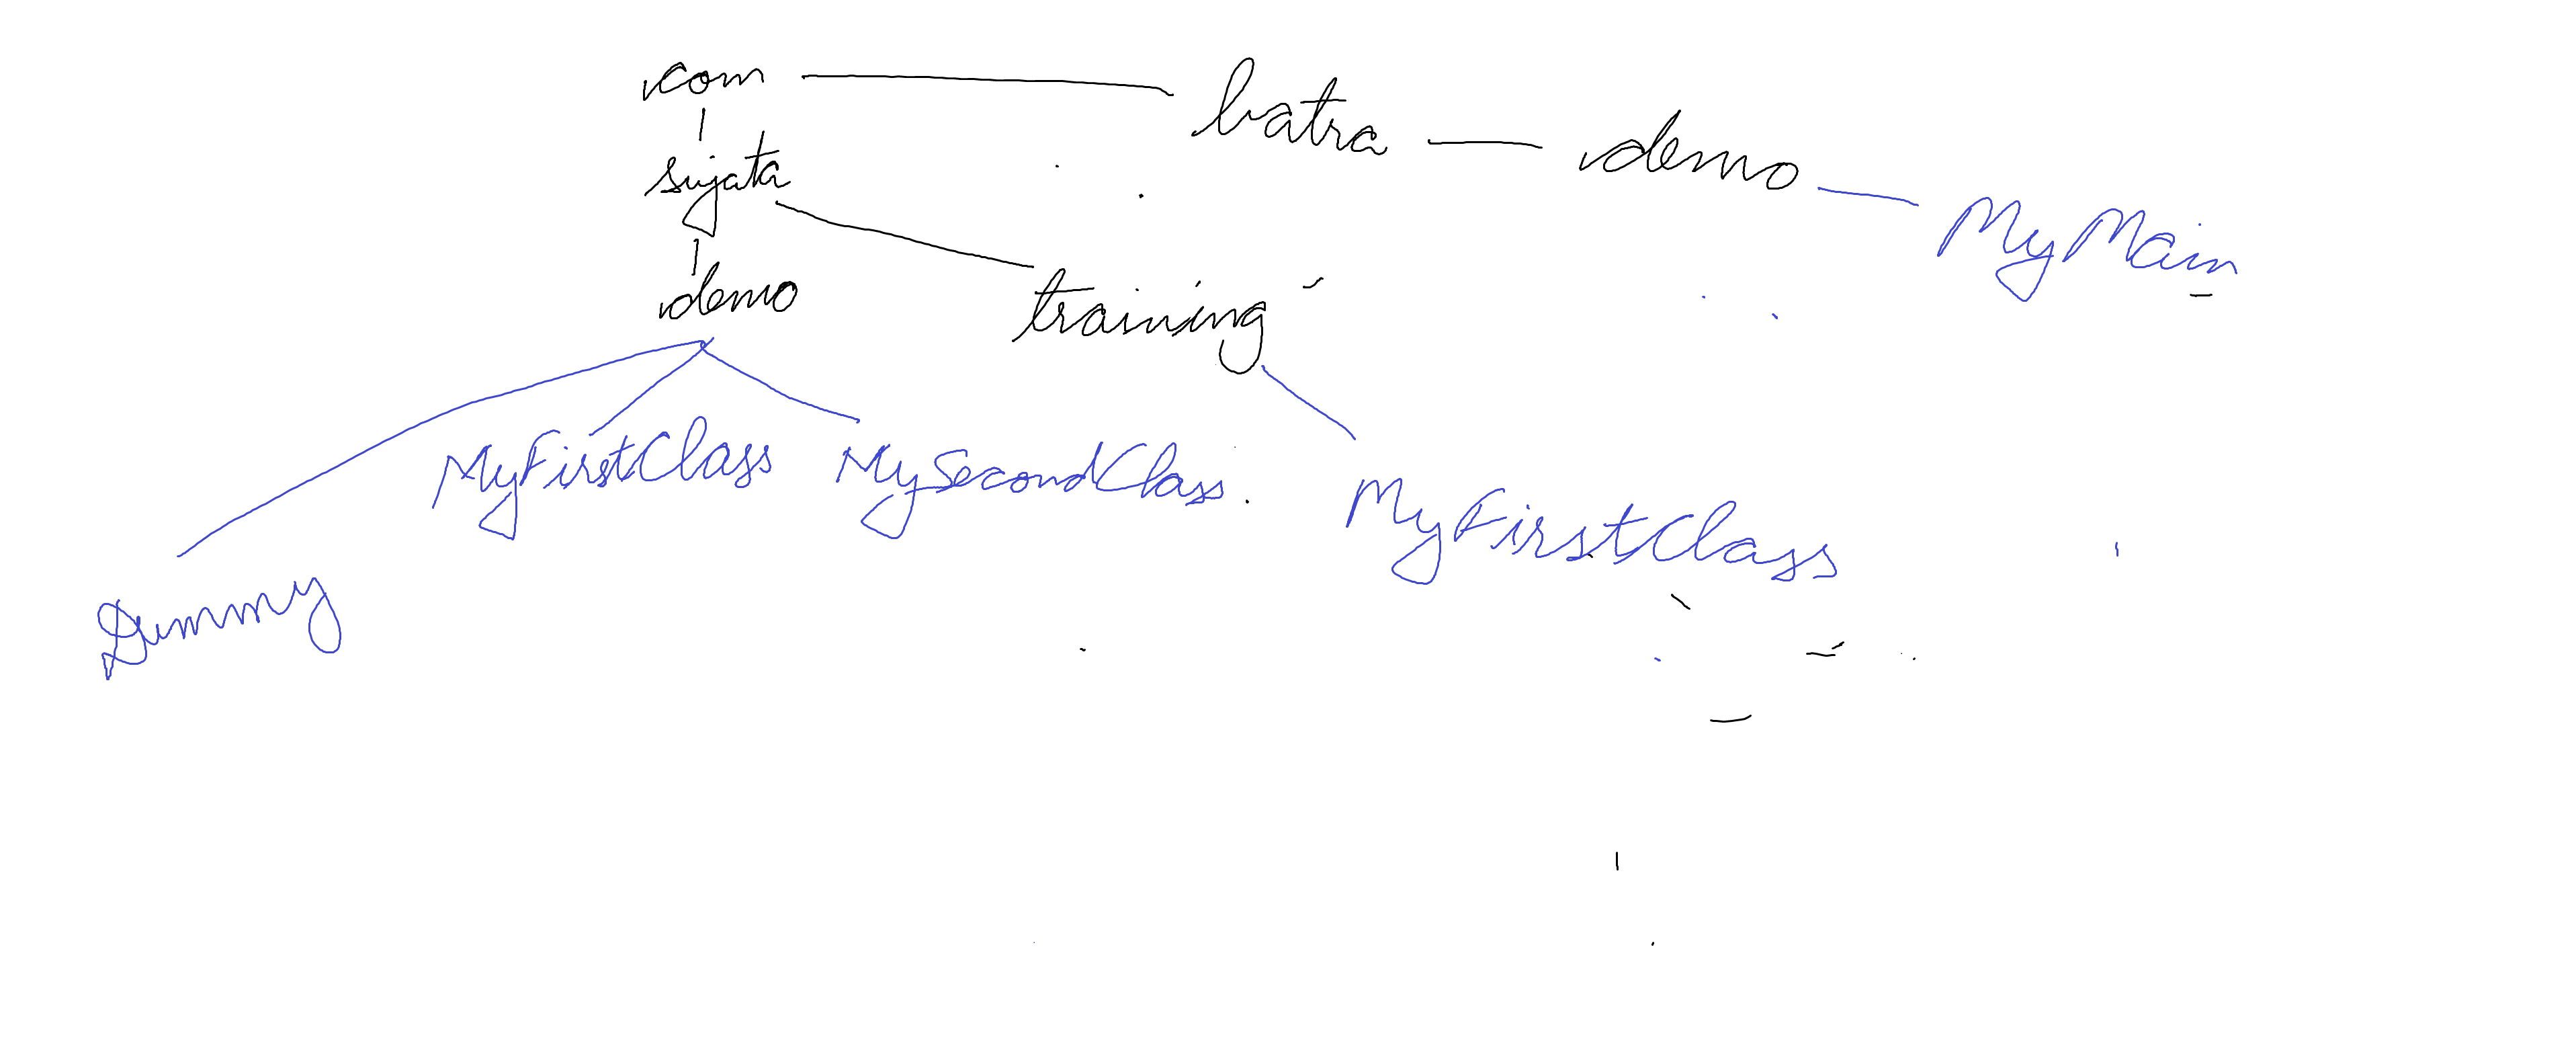 com batra demo MyMain
sujata
demo training
MyFirstClass MySecondClass. MyFirstClass
Dummy